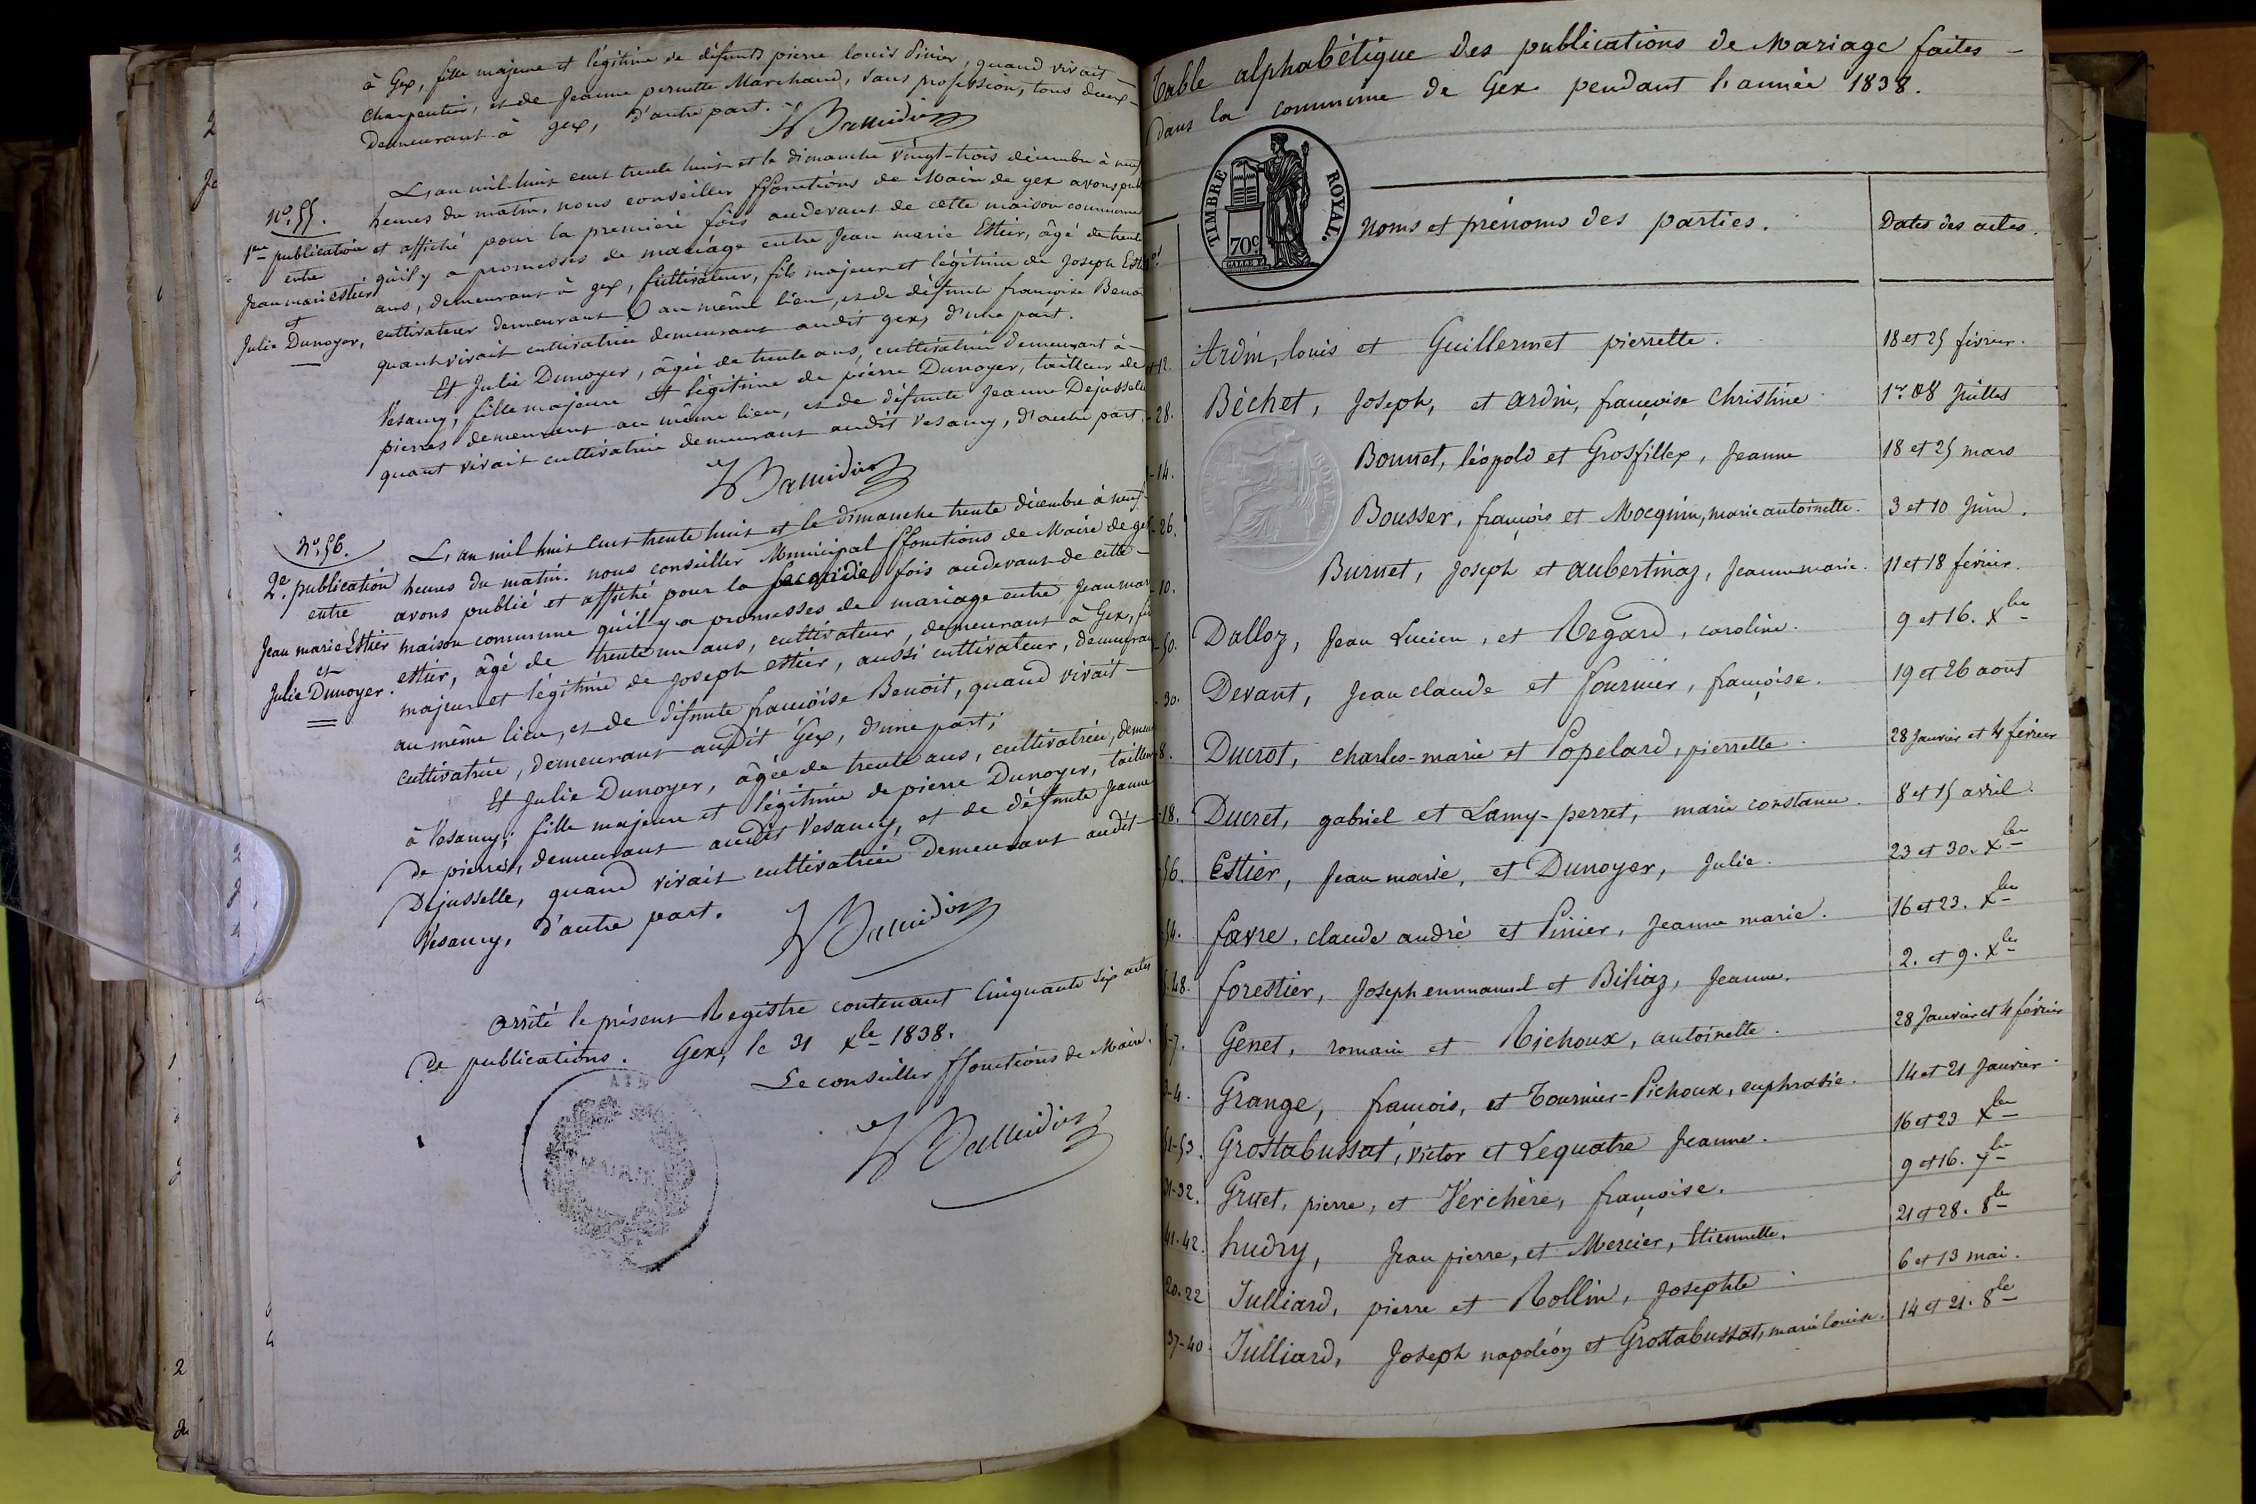 à Gex, fille majeure et légitime de défunts pierre louis Pinier, quand vivait
charpentier, et de Jeanne pernette Marchand, sans profession, tous deux
Demeurant à gex, d'autre part.
N°. 55.
1re publication
entre
Jean marie Estier
et
Julie Dunoyer,
L'an mil huit cent trente huit et le dimanche vingt-trois décembre à neuf
heures du matin, nous conseiller ffonctions de Maire de gex avons pub
et affiché pour la première fois audevant de cette maison commune
qu'il y a promesses de mariage entre Jean marie Estier, âgé de trente
ans, demeurant à gex, cultivateur, fils majeur et légitime de Joseph Est
cultivateur demeurant au même lieu, et de défunte françoise Beno
quant vivait cultivatrice demeurant audit gex, d'une part.
Et Julie Dunoyer, âgée de trente ans, cultivatrice demeurant à
Vesancy, fille majeure et légitime de pierre Dunoyer, tailleur de
pierres demeurant au même lieu, et de défunte Jeanne Dejusselle
quant vivait cultivatrice demeurant audit Vesancy, d'autre part.
N°. 56.
2e. publication
entre
Jean marie Estier
et
Julie Dunoyer.
L'an mil huit cent trente huit et le dimanche trente décembre à neuf
heures du matin. nous conseiller Municipal ffonctions de Maire de gex
avons publié et affiché pour la seconde fois audevant de cette
maison commune qu'il y a promesses de mariage entre Jean mar
estier, âgé de trente un ans, cultivateur, demeurant à Gex, fi
majeur et légitime de Joseph estier, aussi cultivateur, demeuran
au même lieu, et de défunte françoise Benoit, quand vivait
cultivatrice, demeurant audit Gex, d'une part;
Et Julie Dunoyer, âgée de trente ans, cultivatrice, demeu
à Vesancy; fille majeure et légitime de pierre Dunoyer, tailleur
de pierres, demeurant audit Vesancy, et de défunte Jeanne
Dejusselle, quand vivait cultivatrice demeurant audit
Vesancy, d'autre part.
arrêté le présent Registre contenant Cinquante six actes
de publications. Gex, le 31 Xbre 1838.
Le conseiller ffonctions de Maire.
AIN
MAIRIE
Table alphabétique des publications de Mariage faites
dans la commune de Gex pendant l'année 1838.
TIMBRE ROYAL.
70c
noms et prénoms des parties. Dates des actes.
12. Ardin, louis et Guillermet pierrette. 18 et 25 février.
28. Béchet, Joseph, et ardin, françoise Christine 1er et 8 Juillet
14. Bonnet, léopold et Grosfillex, Jeanne 18 et 25 mars
ROYAL
26. Bousser, françois et Mocquin, marie antoinette. 3 et 10 Juin.
10. Burnet, Joseph et aubertinaz, Jeanne marie. 11 et 18 février.
50. Dalloz, Jean Lucien, et Regard, caroline. 9 et 16. Xbre
30. Devant, Jean claude et fournier, françoise. 19 et 26 aout
8. Ducrot, charles-marie et Popelard, pierrette 28 Janvier et 4 février
18. Ducret, gabriel et Lamy-perret, marie constance. 8 et 15 avril.
56. Estier, Jean marie, et Dunoyer, Julie. 23 et 30. Xbre
54. favre, claude andré et Pinier, Jeanne marie. 16 et 23. Xbre
48. forestier, Joseph emmanuel et Biliaz, Jeanne. 2. et 9. Xbre
7. Genet, romain et Richoux, antoinette. 28 Janvier et 4 février
3-4. Grange, françois, et Tournier-Pichoux, euphrasie. 14 et 21 Janvier
51-53. Grostabussat, victor et Lequatre Jeanne. 16 et 23 Xbre
31-32. Grutet, pierre, et Verchère, françoise. 9 et 16. 7bre
41-42. hudry, Jean pierre, et Mercier, Etiennette. 21 et 28. 8bre
20.22 Julliard, pierre et Rollin, Josephte 6 et 13 mai.
37-40 Julliard, Joseph napoléon et Grostabussat, marie louise. 14 et 21. 8bre